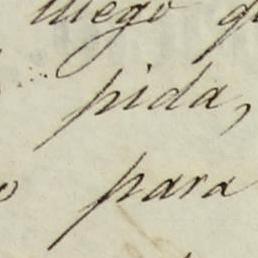 luego
pida,
para